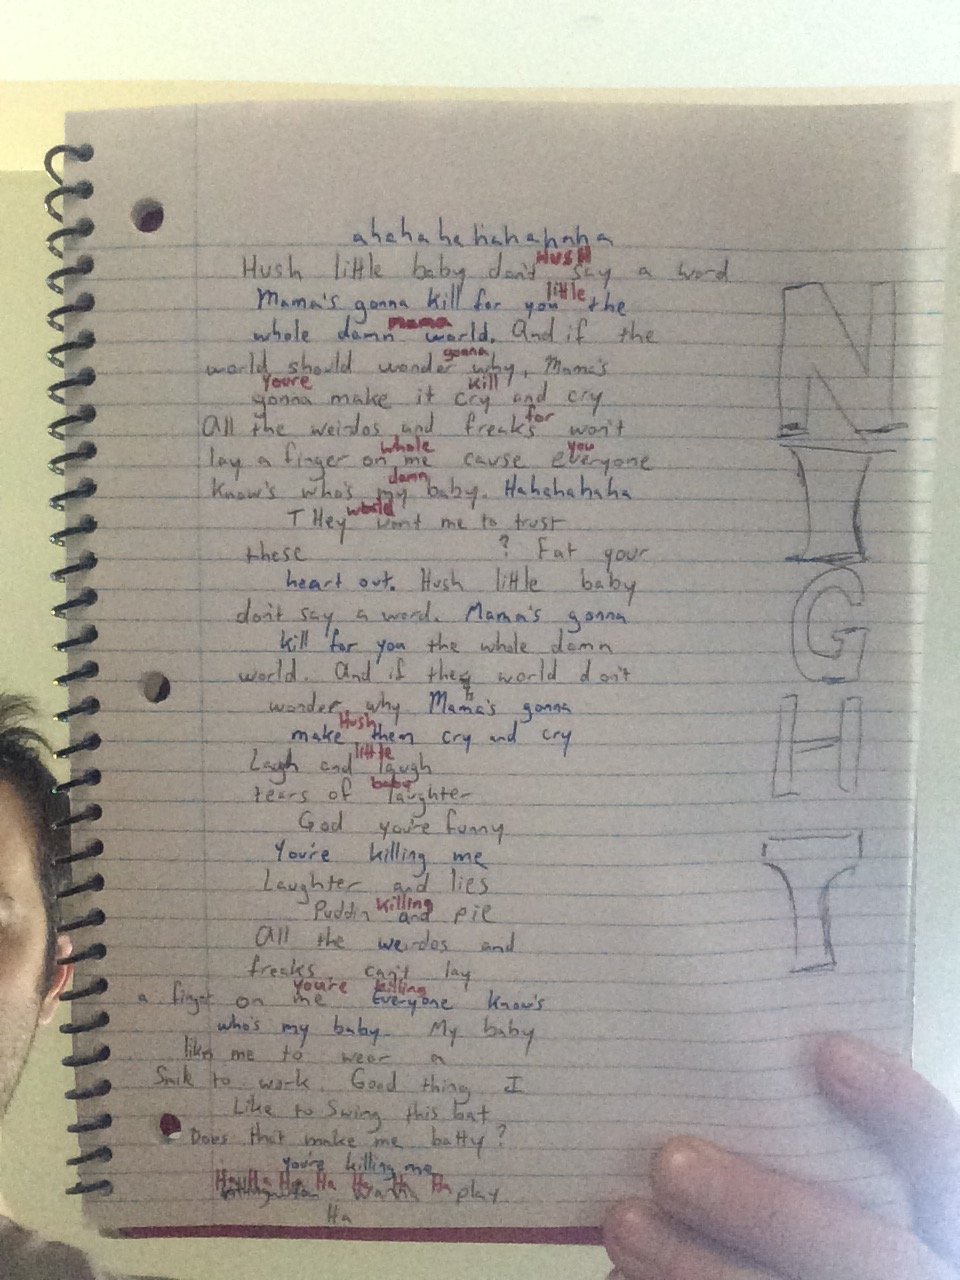 ahahahahahahaha
HUSH
Hush little baby don't say a word
little
Mama's gonna kill for you the
mama
whole damn world. And if the
gonna
world should wonder why, Mama's
You're kill
gonna make it cry and cry
for
All the weirdos and freaks won't
whole you
lay a finger on me cause everyone
damn
Know's who's my baby. Hahahahaha
world
THey want me to trust
these ? Eat your
heart out. Hush little baby
don't say a word. Mama's gonna
kill for you the whole damn
world. And if the world don't
wonder why Mama's gonna
Hush
make them cry and cry
little
Laugh and laugh
baby
tears of laughter
God you're funny
You're killing me
Laughter and lies
killing
Puddin and pie
All the weirdos and
freaks can't lay
You're killing
a finger on me Everyone Know's
who's my baby. My baby
likes me to wear a
to work. Good thing I
Like to Swing this bat
Does that make me batty?
you're killing me
Ha Ha Ha Ha Ha Ha Ha
wanna play
Ha
NIGHT